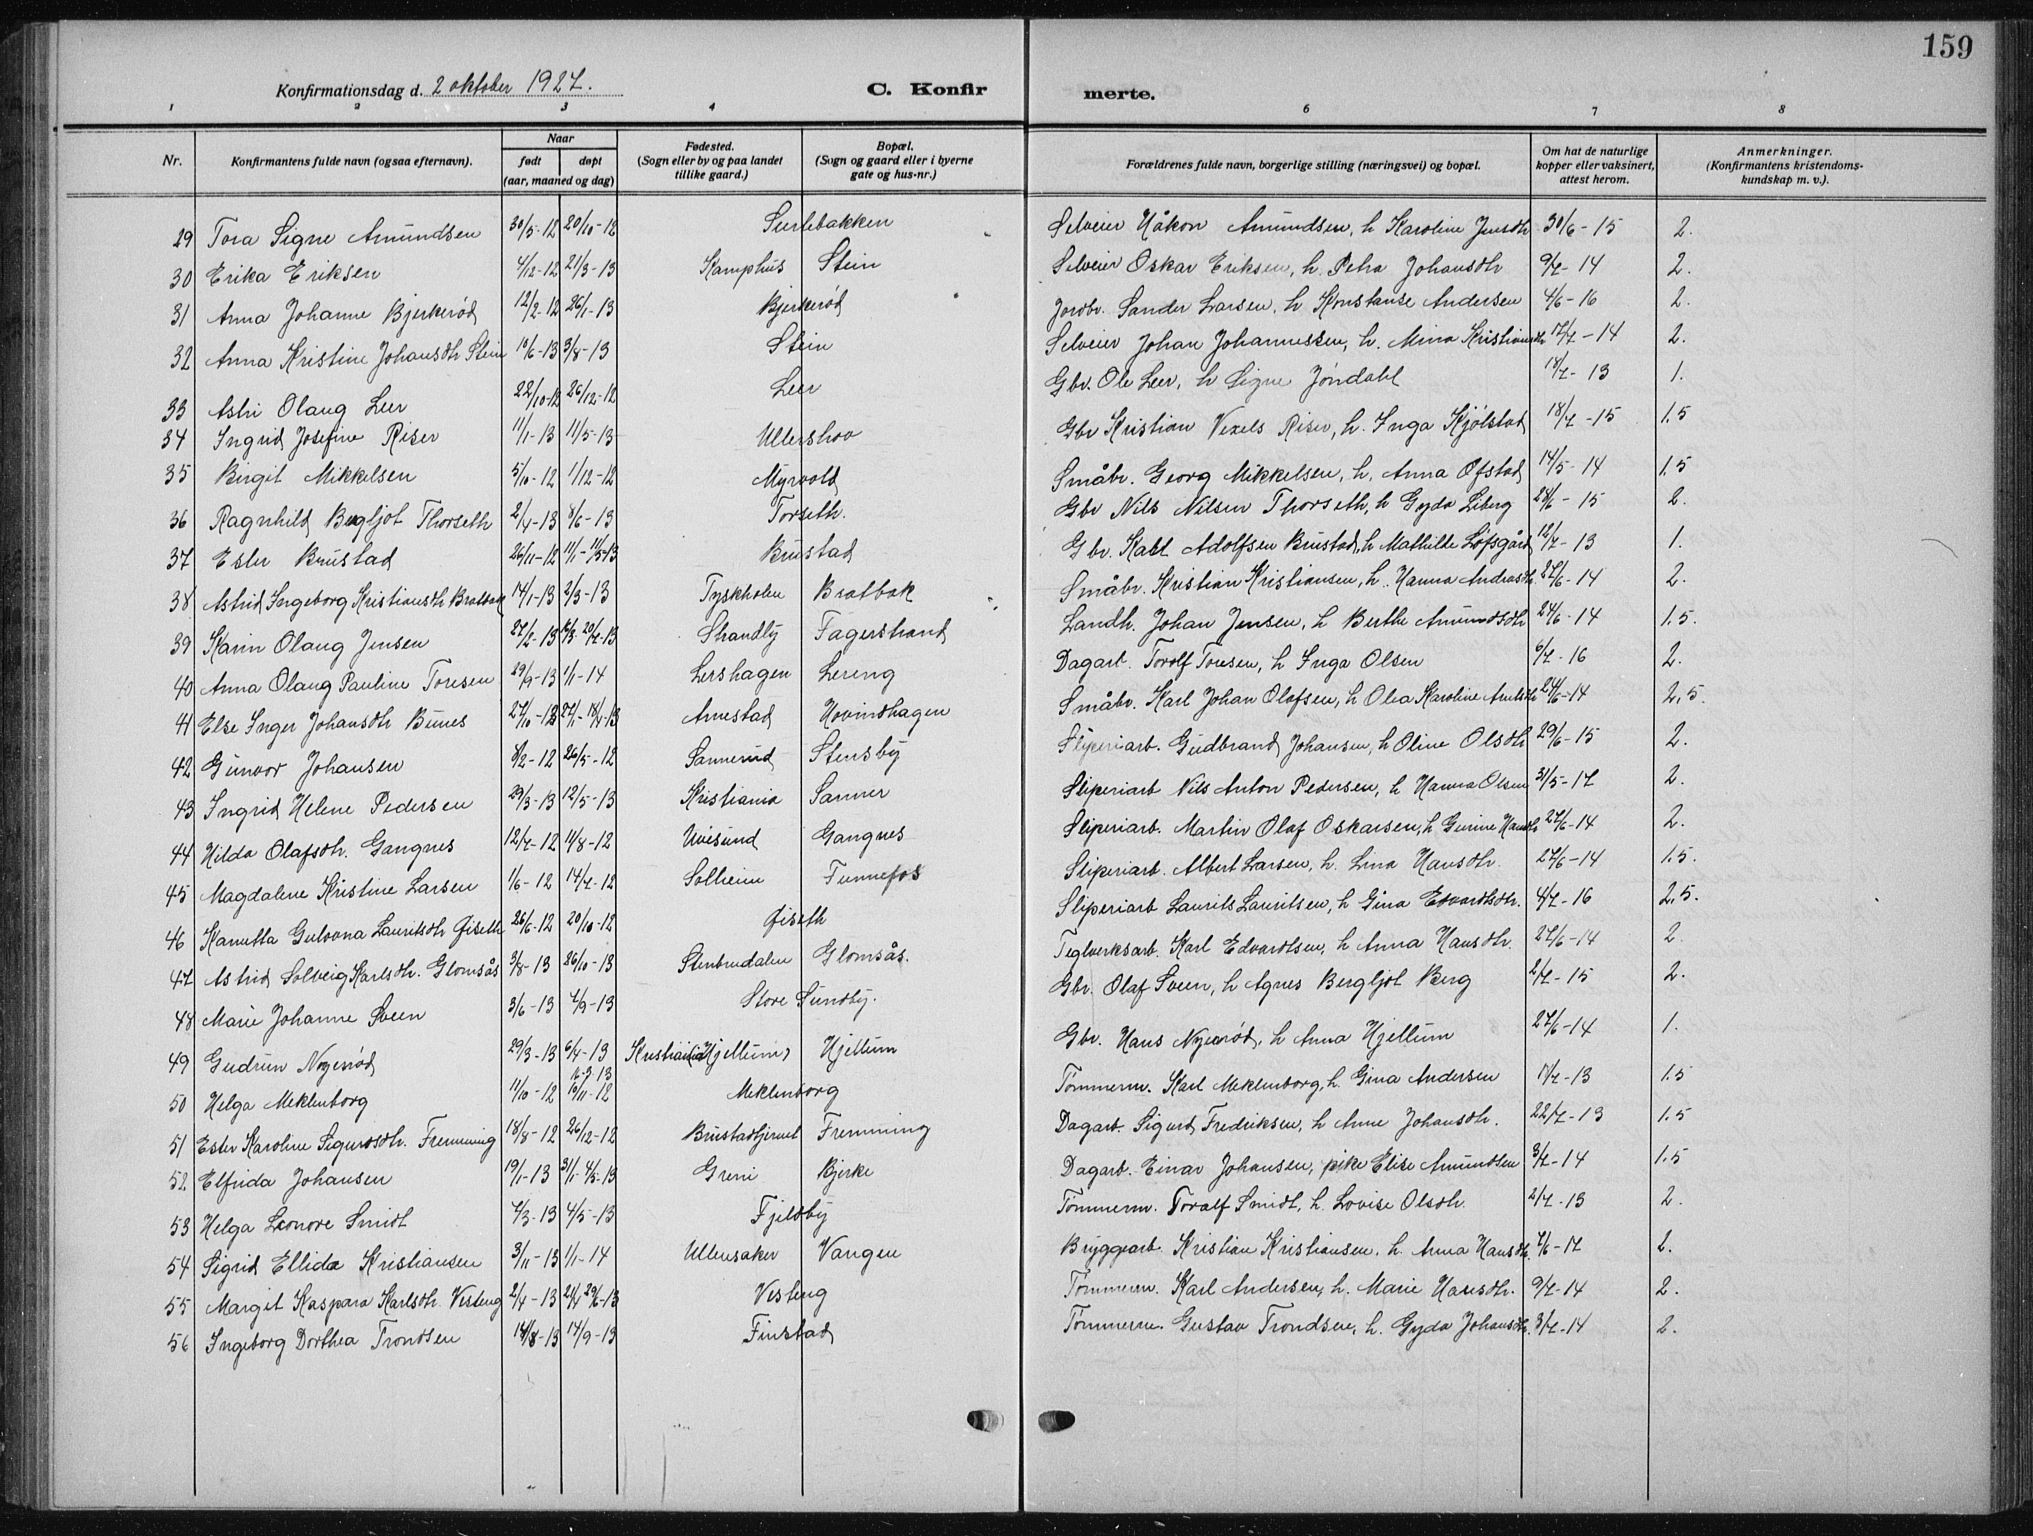 159
Konfirmationsdag d. 2 oktober 1927. C. Konfir merte.
1 2 3 4 6 7 8
Nr. Konfirmantens fulde navn (ogsaa efternavn). Naar født døpt (aar, maaned og dag) Fødested. (Sogn eller by og paa landet tillike gaard.) Bopæl. (Sogn og gaard eller i byerne gate og hus-nr.) Forældrenes fulde navn, borgerlige stilling (næringsvei) og bopæl. Om hat de naturlige kopper eller vaksinert, attest herom. Anmerkninger. (Konfirmantens kristendomskundskap m. v.).
29 Tora Signe Amundsen 30/5-12 20/10-12 Surlebakken Selveier Håkon Amundsen, h Karoline Jensdtr 30/6-15 2.
30 Erika Eriksen 4/12-12 21/3-13 Kamphus Stein Selveier Oskar Eriksen, h. Petra Johansdtr 9/7-14 2.
31 Anna Johanne Bjerkerød 12/2-12 26/1-13 Bjerkerød Jordbr. Sander Larsen, h Konstanse Andersen 4/6-16 2.
32 Anna Kristine Johansdtr Stein 10/6-13 3/8-13 Stein Selveier Johan Johannessen, h. Mina Kristiansdtr 17/7-14 2.
33 Astri Olaug Leer 22/10-12 26/12-12 Leer Gbr. Ole Leer, h Signe Jøndahl 18/7-13 1.
34 Ingrid Josefine Riser 11/1-13 11/5-13 Ullershov Gbr Kristian Vexels Riser, h. Inga Kjølstad 18/7-15 1.5
35 Birgit Mikkelsen 5/10-12 1/12-12 Myrvold Småbr. Georg Mikkelsen, h. Anna Ofstad 14/5-14 1.5
36 Ragnhild Bergljot Thorseth 2/4-13 8/6-13 Torseth. Gbr Nils Nilsen Thorseth, h Gyda Liberg 28/6-15 2.
37 Ester Brustad 26/11-12 11/1-11/5-13 Brustad Gbr. Karl Adolfsen Brustad, h Mathilde Løfsgård 12/7-13 1.
38 Astrid Ingeborg Kristiansdtr Bratbak 14/1-13 2/3-13 Tyskholen Bratbak Småbr. Kristian Kristiansen, h. Hanna Andrasdtr. 27/6-14 2.
39 Karin Olaug Jensen 27/2-13 16/3-20/7-13 Strandly Fagerstrand Landh. Johan Jensen, h Berthe Amundsdtr 24/6-14 1.5.
40 Anna Olaug Pauline Toresen 29/9-13 1/1-14 Lershagen Lereng Dagarb. Torolf Toresen, h Inga Olsen 6/7-16 2.
41 Else Inger Johansdtr Bunes 27/10-12 Arnestad Hovindhagen Småbr. Karl Johan Olafsen, h Olea Karoline 24/6-14 2,5.
42 Gunvor Johansen 8/2-12 26/5-12 Sannerud Stensby Sliperiarb. Gudbrand Johansen, h Oline Olsdtr 29/6-15 2.
43 Ingrid Helene Pedersen 29/3-13 12/5-13 Kristiania Sanner Sliperiarb Nils Anton Pedersen, h Hanna Olsen 31/5-17 2.
44 Hilda Olafsdtr. Gangnes 12/7-12 11/8-12 Uvisund Gangnes Sliperiarb. Martin Olaf Oskarsen, h Gurine Hansdtr 27/6-14 2.
45 Magdalene Kristine Larsen 1/6-12 14/7-12 Solheim Funnefos Sliperiarb. Albert Larsen, h. Lina Hansdtr. 27/6-14 1.5.
46 Kanutta Gulvona Lauritsdtr Øiseth 26/6-12 20/10-12 Øiseth Sliperiarb Laurits Lauritsen, h Gina Edvardsdtr. 4/7-16 2,5.
47 Astrid Solveig Karlsdtr. Glomsås 3/8-13 26/10-13 Stenbrudalen Glomsås. Teglverksarb. Karl Edvardtsen, h Anna Hansdtr. 27/6-14 2.
48 Marie Johanne Sveen 3/6-13 7/9-13 Store Sundby. Gbr. Olaf Sveen, h Agnes Bergljot Berg 2/7-15 2.
49 Gudrun Nyerrød 29/3-13 6/4-13 Kristiania (Hjellum) Hjellum Gbr. Hans Nyerrød, h Anna Hjellum 27/6-14 1.
50 Helga Meklenborg 11/10-12 10/11-12 Meklenborg Tømmerm. Karl Meklenborg, h. Gina Andersen 17/7-13 1.5
51 Ester Karoline Sigurdsdtr. Fremming 18/8-12 26/12-12 Brustadtjernet Fremming Dagarb. Sigurd Fredriksen, h Anne Johansdtr. 22/7-13 1.5
52 Elfrida Johansen 19/1-13 31/1-4/5-13 Greni Bjerke Dagarb. Einar Johansen, pike Elise Amundsen 3/7-14 1.5
53 Helga Leonore Smidt 7/3-13 4/5-13 Fjeldby Tømmerm. Toralf Smidt, h. Lovise Olsdtr. 2/7-13 2.
54 Sigrid Ellida Kristiansen 3/11-13 1/1-14 Ullensaker Vangen Bryggearb. Kristian Kristiansen, h. Anna Hansdtr. 7/6-17 2.
55 Margit Kaspara Karlsdtr. Vesteng 2/4-13 Vesteng Tømmerm. Karl Andersen, h. Marie Hansdtr. 9/7-14 2.
56 Ingeborg Dorthea Trondsen 14/8-13 14/9-13 Finstad Tømmerm. Gustav Trondsen, h. Gyda Johansdtr. 3/7-14 2.